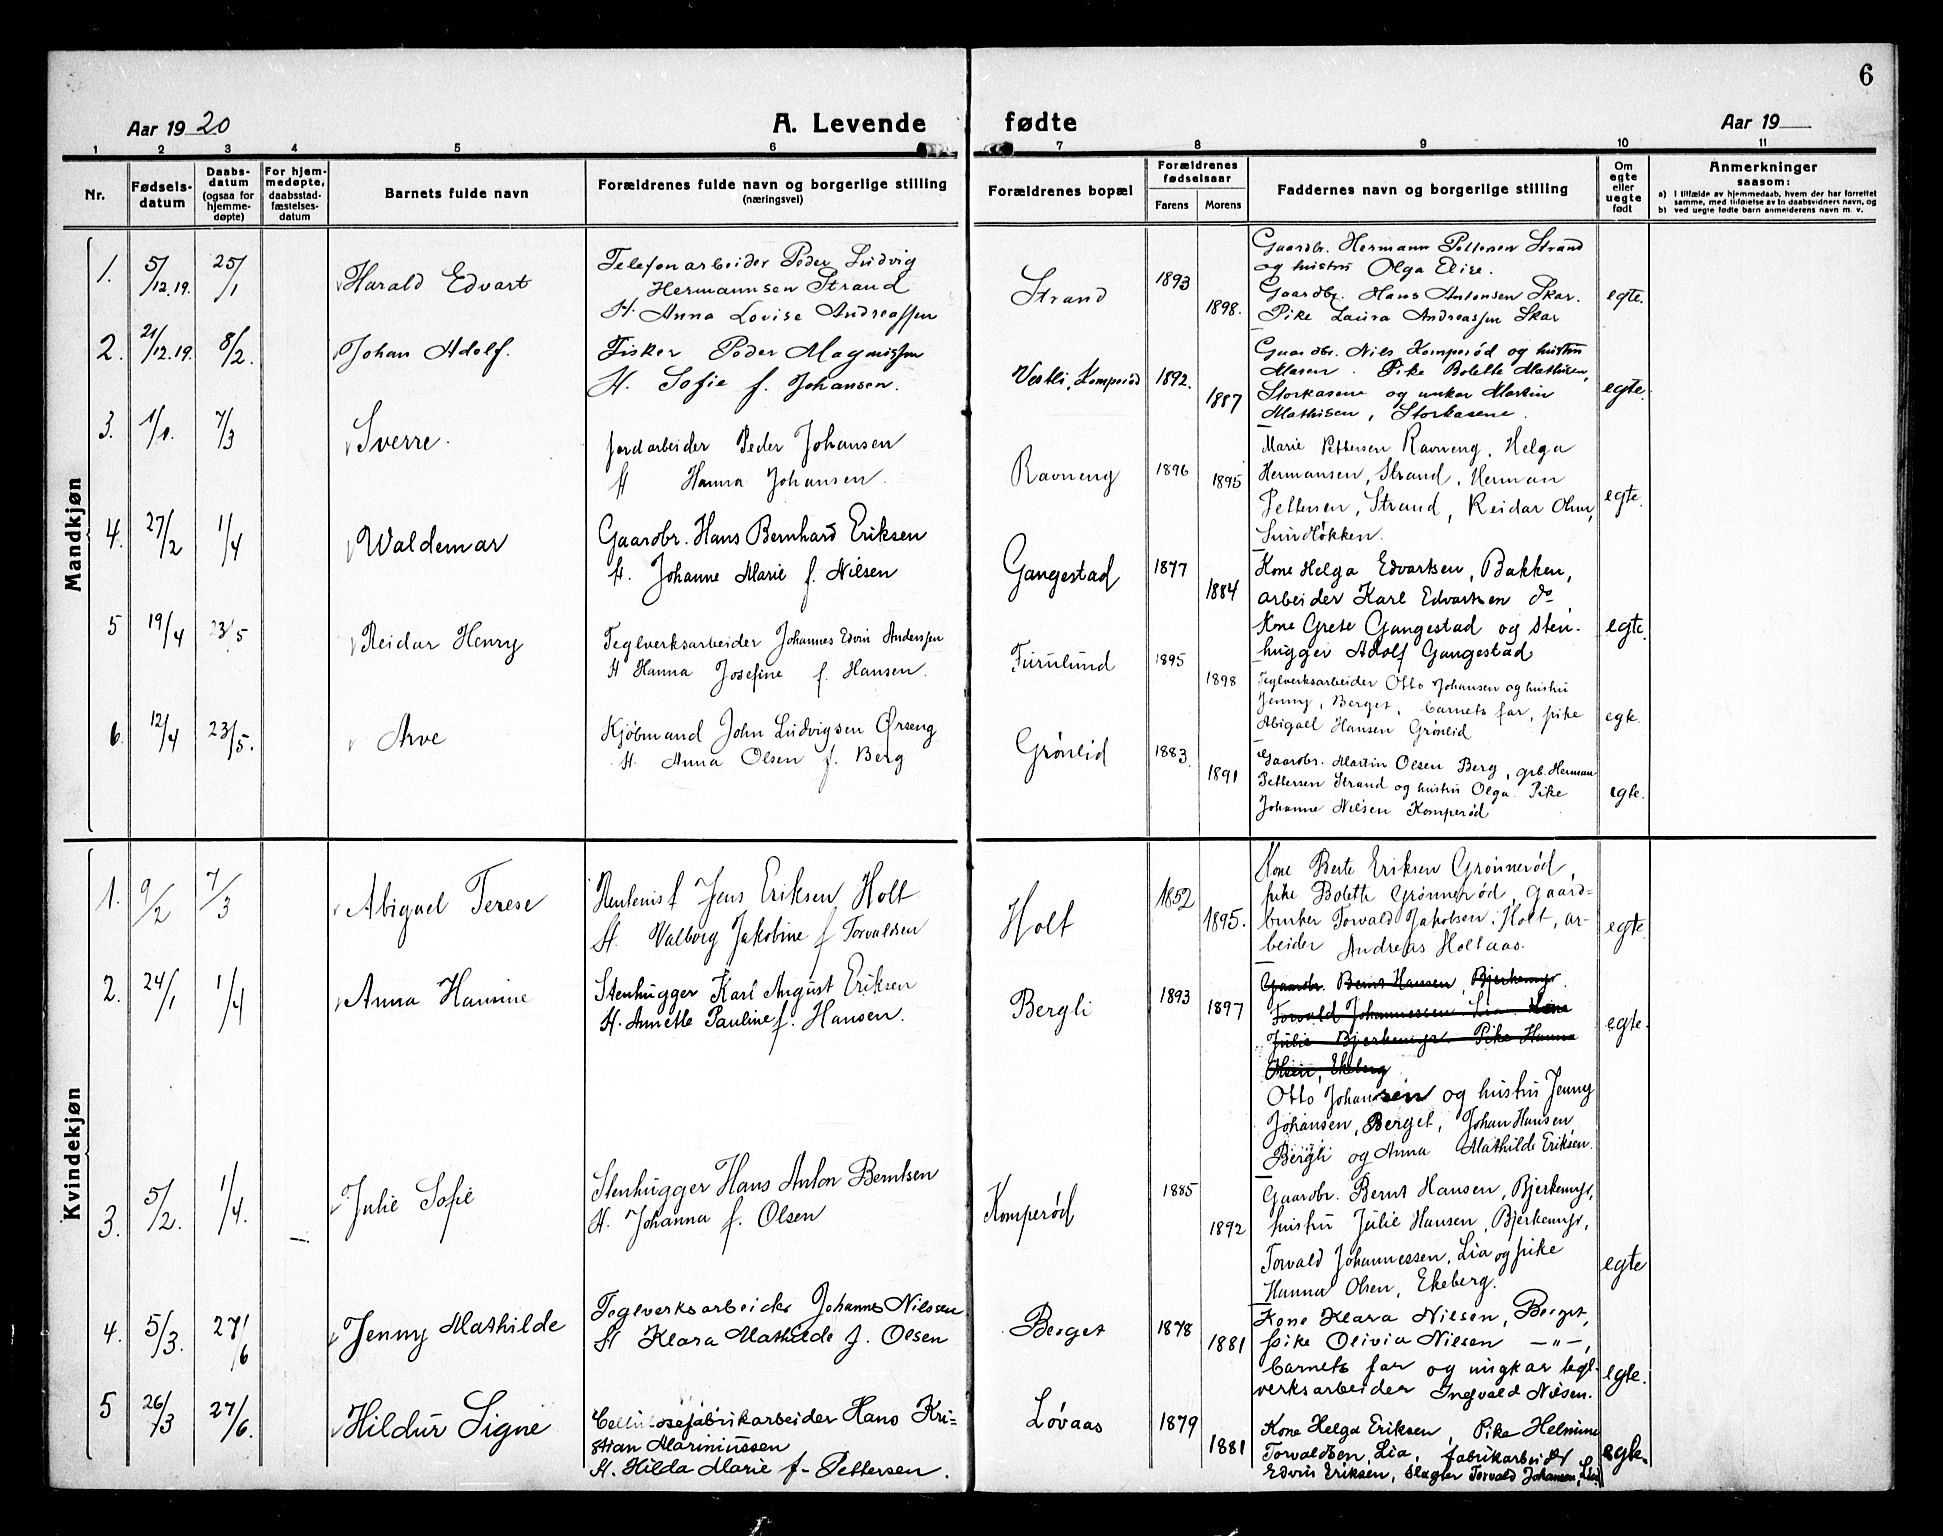 6
Aar 1920
A. Levende fødte
Aar 19
1 2 3 4 5 6 7 8 9 10 11
Nr.
Fødsels-
datum
Daabs-
datum
(ogsaa for
hjemme-
døpte)
For hjem-
medøpte,
daabsstad-
fæstelses-
datum
Barnets fulde navn
Forældrenes fulde navn og borgerlige stilling
(næringsvei)
Forældrenes bopæl
Forældrenes
fødselsaar
Farens Morens
Faddernes navn og borgerlige stilling
Om
egte
eller
uegte
født
Anmerkninger
saasom:
a) I tilfælde av hjemmedaab, hvem der har forrettet
samme, med tilføielse av to daabsvidners navn, og
b) ved uegte fødte barn anmelderens navn m. v.
Mandkjøn
1. 5/12.19. 25/1
Harald Edvart
Telefonarbeider Peder Ludvig
Hermannsen Strand
H. Anna Lovise Andreassen
Strand
1893
1898.
Gaardbr. Hermann Pettersen Strand
og hustru Olga Elise.
Gaardbr. Hans Antonsen Skar.
Pike Laura Andreassen Skar
egte.
2. 21/12.19. 8/2.
Johan Adolf.
Fisker Peder Magnissen
H. Sofie f. Johansen.
Vestli, Komperød
1892.
1887
Gaardbr. Nils Komperød og hustru
Maren. Pike Bolette Mathisen,
Storkasene og unkar Martin
Mathisen, Storkasene.
egte.
3. 1/1. 7/3
Sverre.
Jordarbeider Peder Johansen
H Hanna Johansen.
Ravneng
1896
1895
Marie Pettersen Ravneng, Helga
Hermansen, Strand, Herman
Pettersen, Strand, Reidar Olsen,
Sundløkken.
egte.
4. 27/2 1/4
Waldemar
Gaardbr. Hans Bernhard Eriksen
H. Johanne Marie f. Nilsen
Gangestad
1877
1884
Kone Helga Edvartsen, Bakken,
arbeider Karl Edvartsen do,
Kone Grete Gangestad og sten-
hugger Adolf Gangestad
egte.
5 19/4 23/5
Reidar Henry
Teglverksarbeider Johannes Edvin Anderssen
H Hanna Josefine f. Hansen.
Furulund
1895
1898
Teglverksarbeider Otto Johansen og hustru
Jenny, Berget, barnets far, pike
Abigael Hansen Grønlid
egte.
6. 12/4 23/5.
Arve
Kjøbmand John Ludvigsen Ørseng
H. Anna Olsen f. Berg
Grønlid
1883.
1891
Gaardbr. Martin Olsen Berg, grb. Herman
Pettersen Strand og hustru Olga. Pike
Johanne Nilsen Komperød
egte.
Kvindekjøn
1. 9/2 7/3
Abigael Terese
Rentenist Jens Eriksen Holt
H. Valborg Jakobine f Torvaldsen
Holt
1852
1895.
Kone Berte Eriksen Grønnerød,
pike Bolette Grønnerød, Gaard-
bruker Torvald Jakobsen. Holt, ar-
beider Andreas Holtaas.
egte.
2. 24/1 1/4
Anna Hansine
Stenhugger Karl August Eriksen
H. Annette Pauline f. Hansen.
Bergli
1893
1897
Gaardbr. Bernt Hansen, Bjerkemyr.
Torvald Johannessen Lia Kone
Julie Bjerkemyr. Pike Hanna
Olsen, Ekeberg
Otto Johansen og hustru Jenny
Johansen, Berget, Johan Hansen,
Bergli og Anna Mathilde Eriksen.
egte.
3. 5/2. 1/4.
Julie Sofie
Stenhugger Hans Anton Berntsen
H. Johanna f. Olsen
Komperød
1885
1892
Gaardbr. Bernt Hansen, Bjerkemyr,
hustru Julie Hansen, Bjerkemyr,
Torvald Johannessen, Lia og pike
Hanna Olsen, Ekeberg.
egte
4. 5/3. 27/6
Jenny Mathilde
Teglverksarbeider Johannes Nilssen
H Klara Mathilde f. Olsen
Berget
1878
1881
Kone Klara Nilsen, Berget,
pike Olivia Nilsen —"—,
barnets far og ungkar tegl-
verksarbeider Ingvald Nilsen.
egte.
5 26/3 27/6.
Hildur Signe
Cellulosefabrikarbeider Hans Kri-
stian Mariniussen
H. Hilda Marie f. Pettersen.
Løvaas
1879
1881
Kone Helga Eriksen, Pike Helmine
Torvaldsen, Lia, fabrikarbeider
Edvin Eriksen, Slagter Torvald Johansen, Lia
egte.